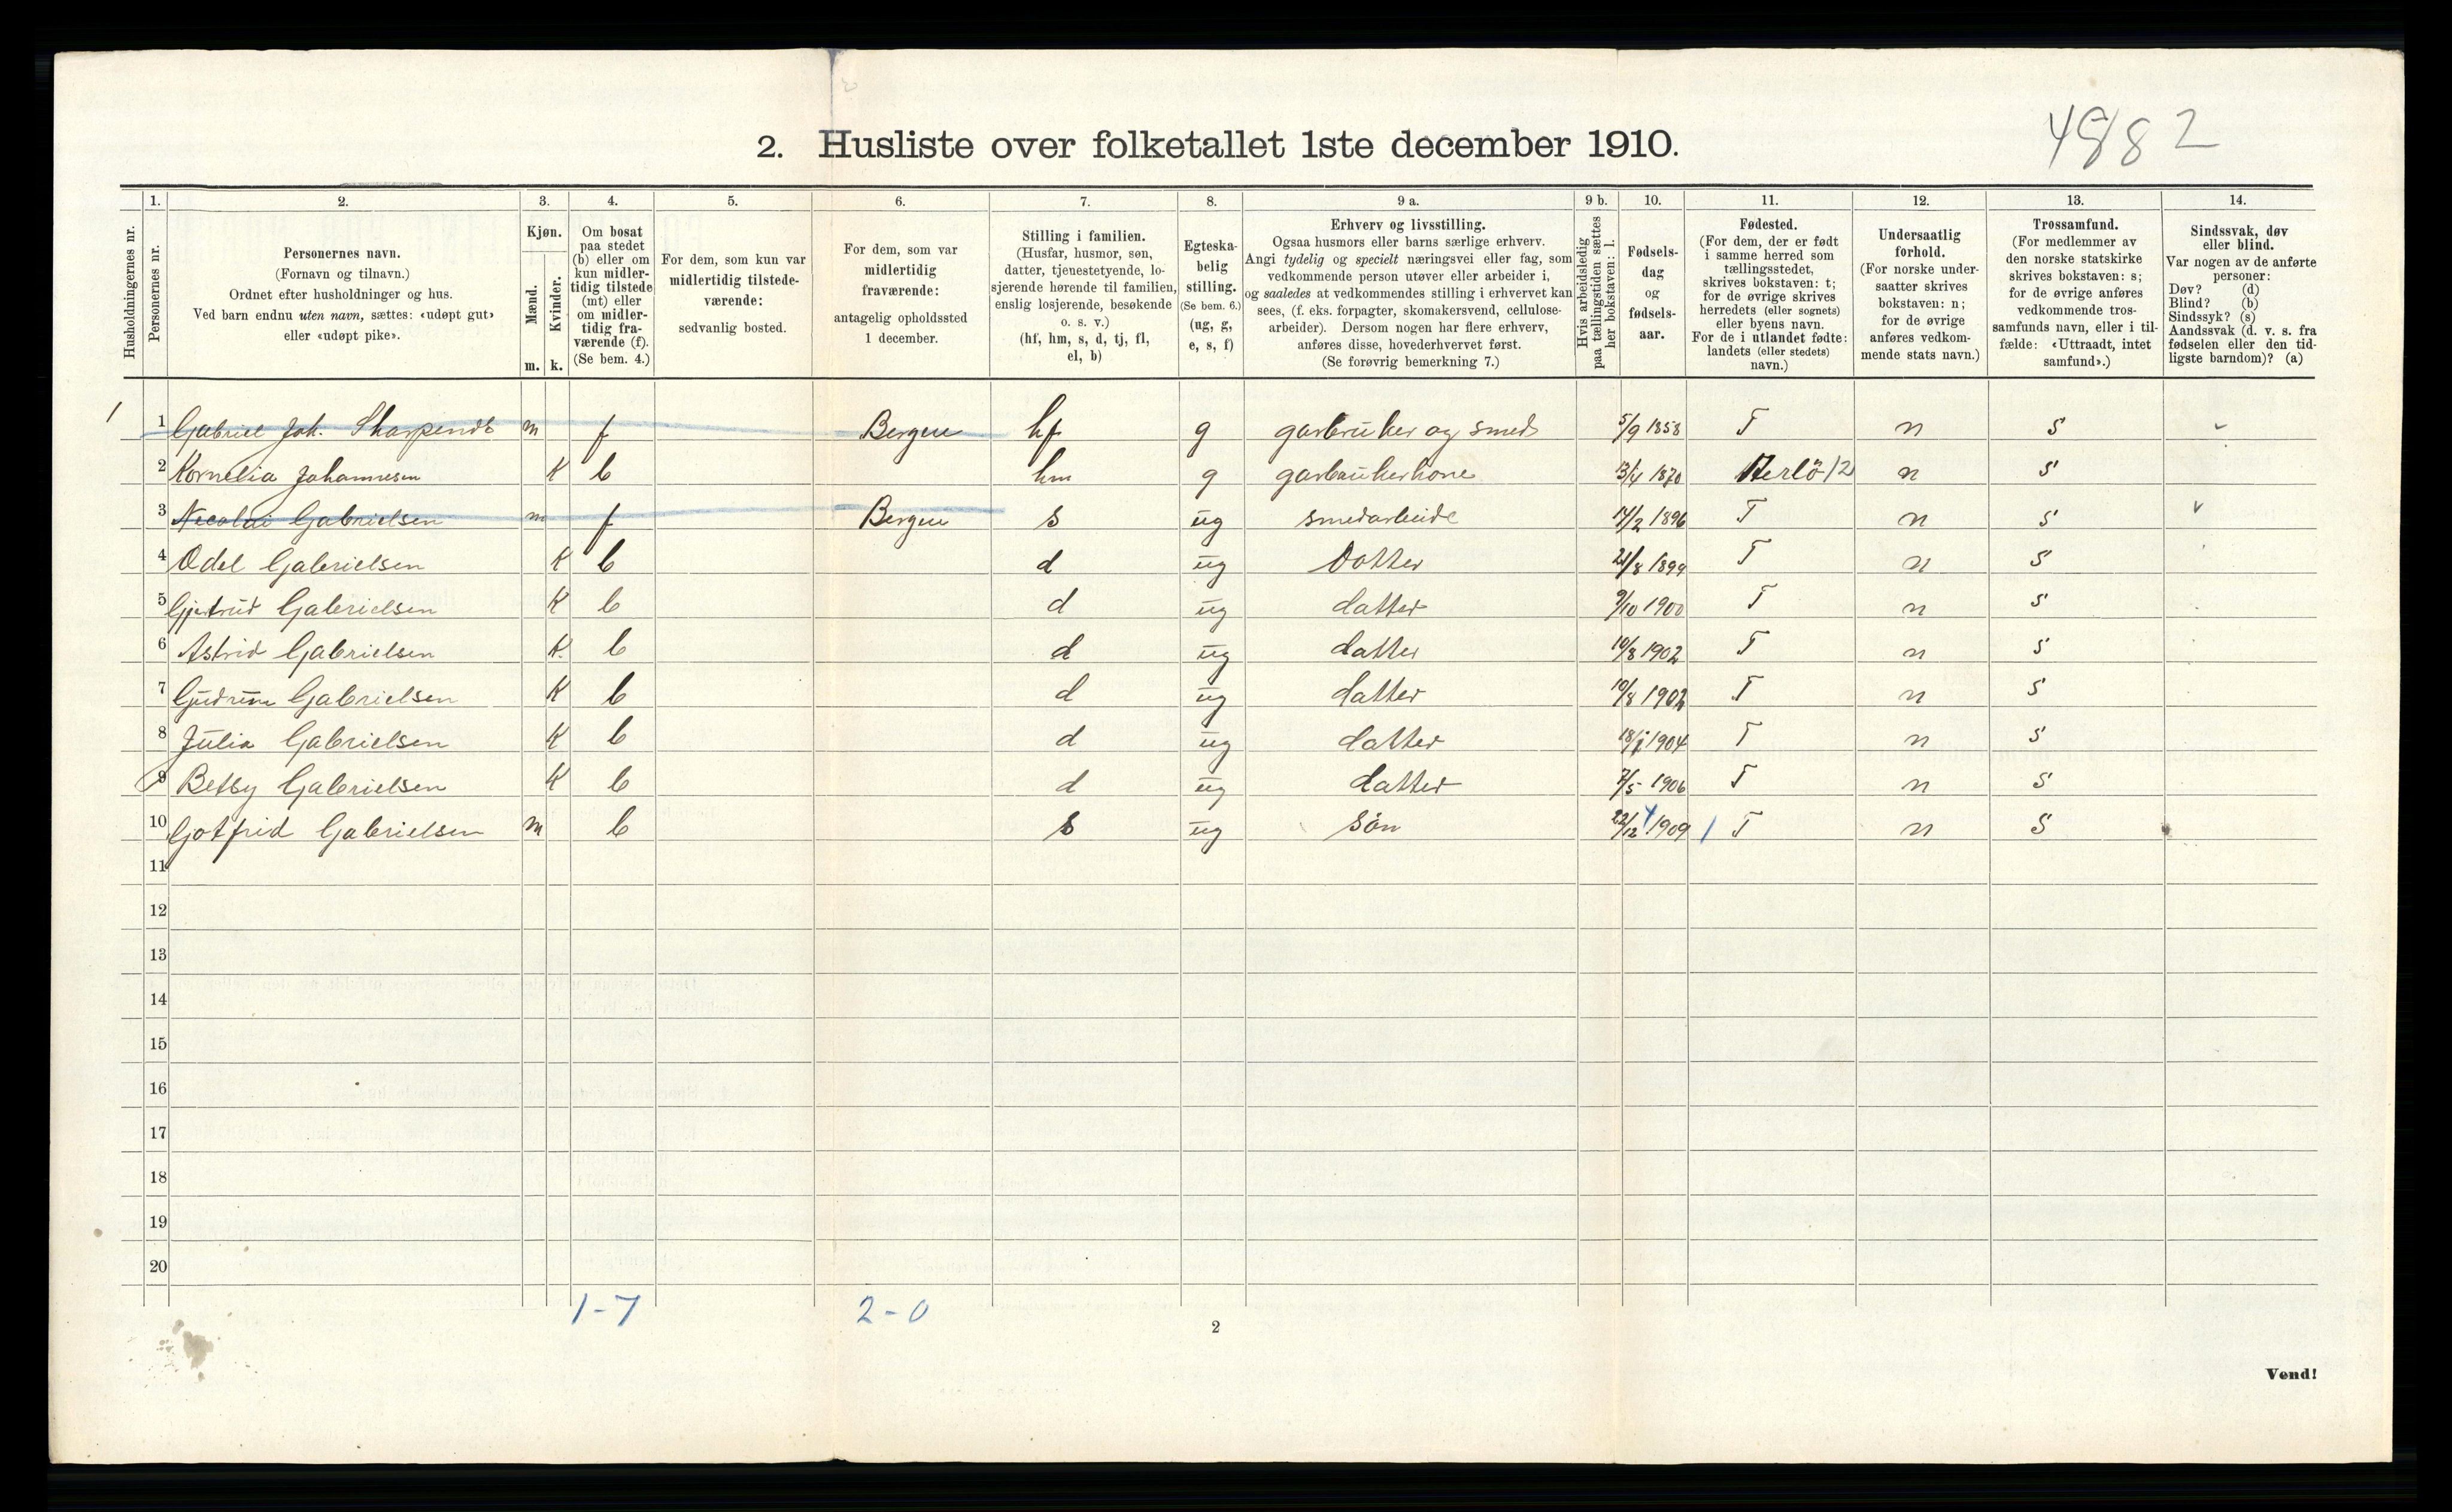 4882
2. Husliste over folketallet 1ste december 1910.
Husholdningernes nr.
1.
Personernes nr.
2.
Personernes navn.
(Fornavn og tilnavn.)
Ordnet efter husholdninger og hus.
Ved barn endnu uten navn, sættes: «udøpt gut»
eller «udøpt pike».
3.
Kjøn.
Mænd.
Kvinder.
m. k.
4.
Om bosat
paa stedet
(b) eller om
kun midler-
tidig tilstede
(mt) eller
om midler-
tidig fra-
værende (f).
(Se bem. 4.)
5.
For dem, som kun var
midlertidig tilstede-
værende:
sedvanlig bosted.
6.
For dem, som var
midlertidig
fraværende:
antagelig opholdssted
1 december.
7.
Stilling i familien.
(Husfar, husmor, søn,
datter, tjenestetyende, lo-
sjerende hørende til familien,
enslig losjerende, besøkende
o. s. v.)
(hf, hm, s, d, tj, fl,
el, b)
8.
Egteska-
belig
stilling.
(Se bem. 6.)
(ug, g,
e, s, f)
9 a.
Erhverv og livsstilling.
Ogsaa husmors eller barns særlige erhverv.
Angi tydelig og specielt næringsvei eller fag, som
vedkommende person utøver eller arbeider i,
og saaledes at vedkommendes stilling i erhvervet kan
sees, (f. eks. forpagter, skomakersvend, cellulose-
arbeider). Dersom nogen har flere erhverv,
anføres disse, hovederhvervet først.
(Se forøvrig bemerkning 7.)
9 b.
Hvis arbeidsledig
paa tællingstiden sættes
her bokstaven: l.
10.
Fødsels-
dag
og
fødsels-
aar.
11.
Fødested.
(For dem, der er født
i samme herred som
tællingsstedet,
skrives bokstaven: t;
for de øvrige skrives
herredets (eller sognets)
eller byens navn.
For de i utlandet fødte:
landets (eller stedets)
navn.)
12.
Undersaatlig
forhold.
(For norske under-
saatter skrives
bokstaven: n;
for de øvrige
anføres vedkom-
mende stats navn.)
13.
Trossamfund.
(For medlemmer av
den norske statskirke
skrives bokstaven: s;
for de øvrige anføres
vedkommende tros-
samfunds navn, eller i til-
fælde: «Uttraadt, intet
samfund».)
14.
Sindssvak, døv
eller blind.
Var nogen av de anførte
personer:
Døv? (d)
Blind? (b)
Sindssyk? (s)
Aandssvak (d. v. s. fra
fødselen eller den tid-
ligste barndom)? (a)
1 1 Gabriel Joh. m f Bergen hf g garbruker og smed 5/9 1858 T n S
2 Kornelia Johannesen K b hm g garbrukerkone 13/4 1870 Herlö 12 n S
3 Nicolai Gabrielsen m f Bergen s ug smedarbeide 14/2 1896 T n S
4 Odel Gabrielsen K b d ug Datter 21/8 1899 T n S
5 Gjertrud Gabrielsen K b d ug datter 9/10 1900 T n S
6 Astrid Gabrielsen K b d ug datter 10/8 1902 T n S
7 Gudrun Gabrielsen K b d ug datter 10/8 1902 T n S
8 Julia Gabrielsen K b d ug datter 1904 T n S
9 Betsy Gabrielsen K b d ug datter 7/5 1906 T n S
10 Gotfrid Gabrielsen m b s ug Sön 22/12 1909 T n S
11
12
13
14
15
16
17
18
19
20
1-7 2-0
2
Vend!